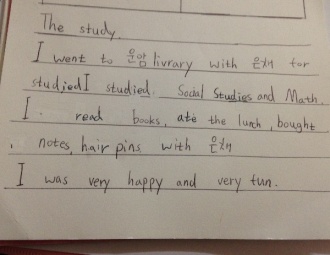 The study.
I went to 운암 livrary with 은채 for
studied I studied. Social Studies and Math.
I. read books, ate the lunch, bought
notes, hair pins with 은채
I was very happy and very fun.